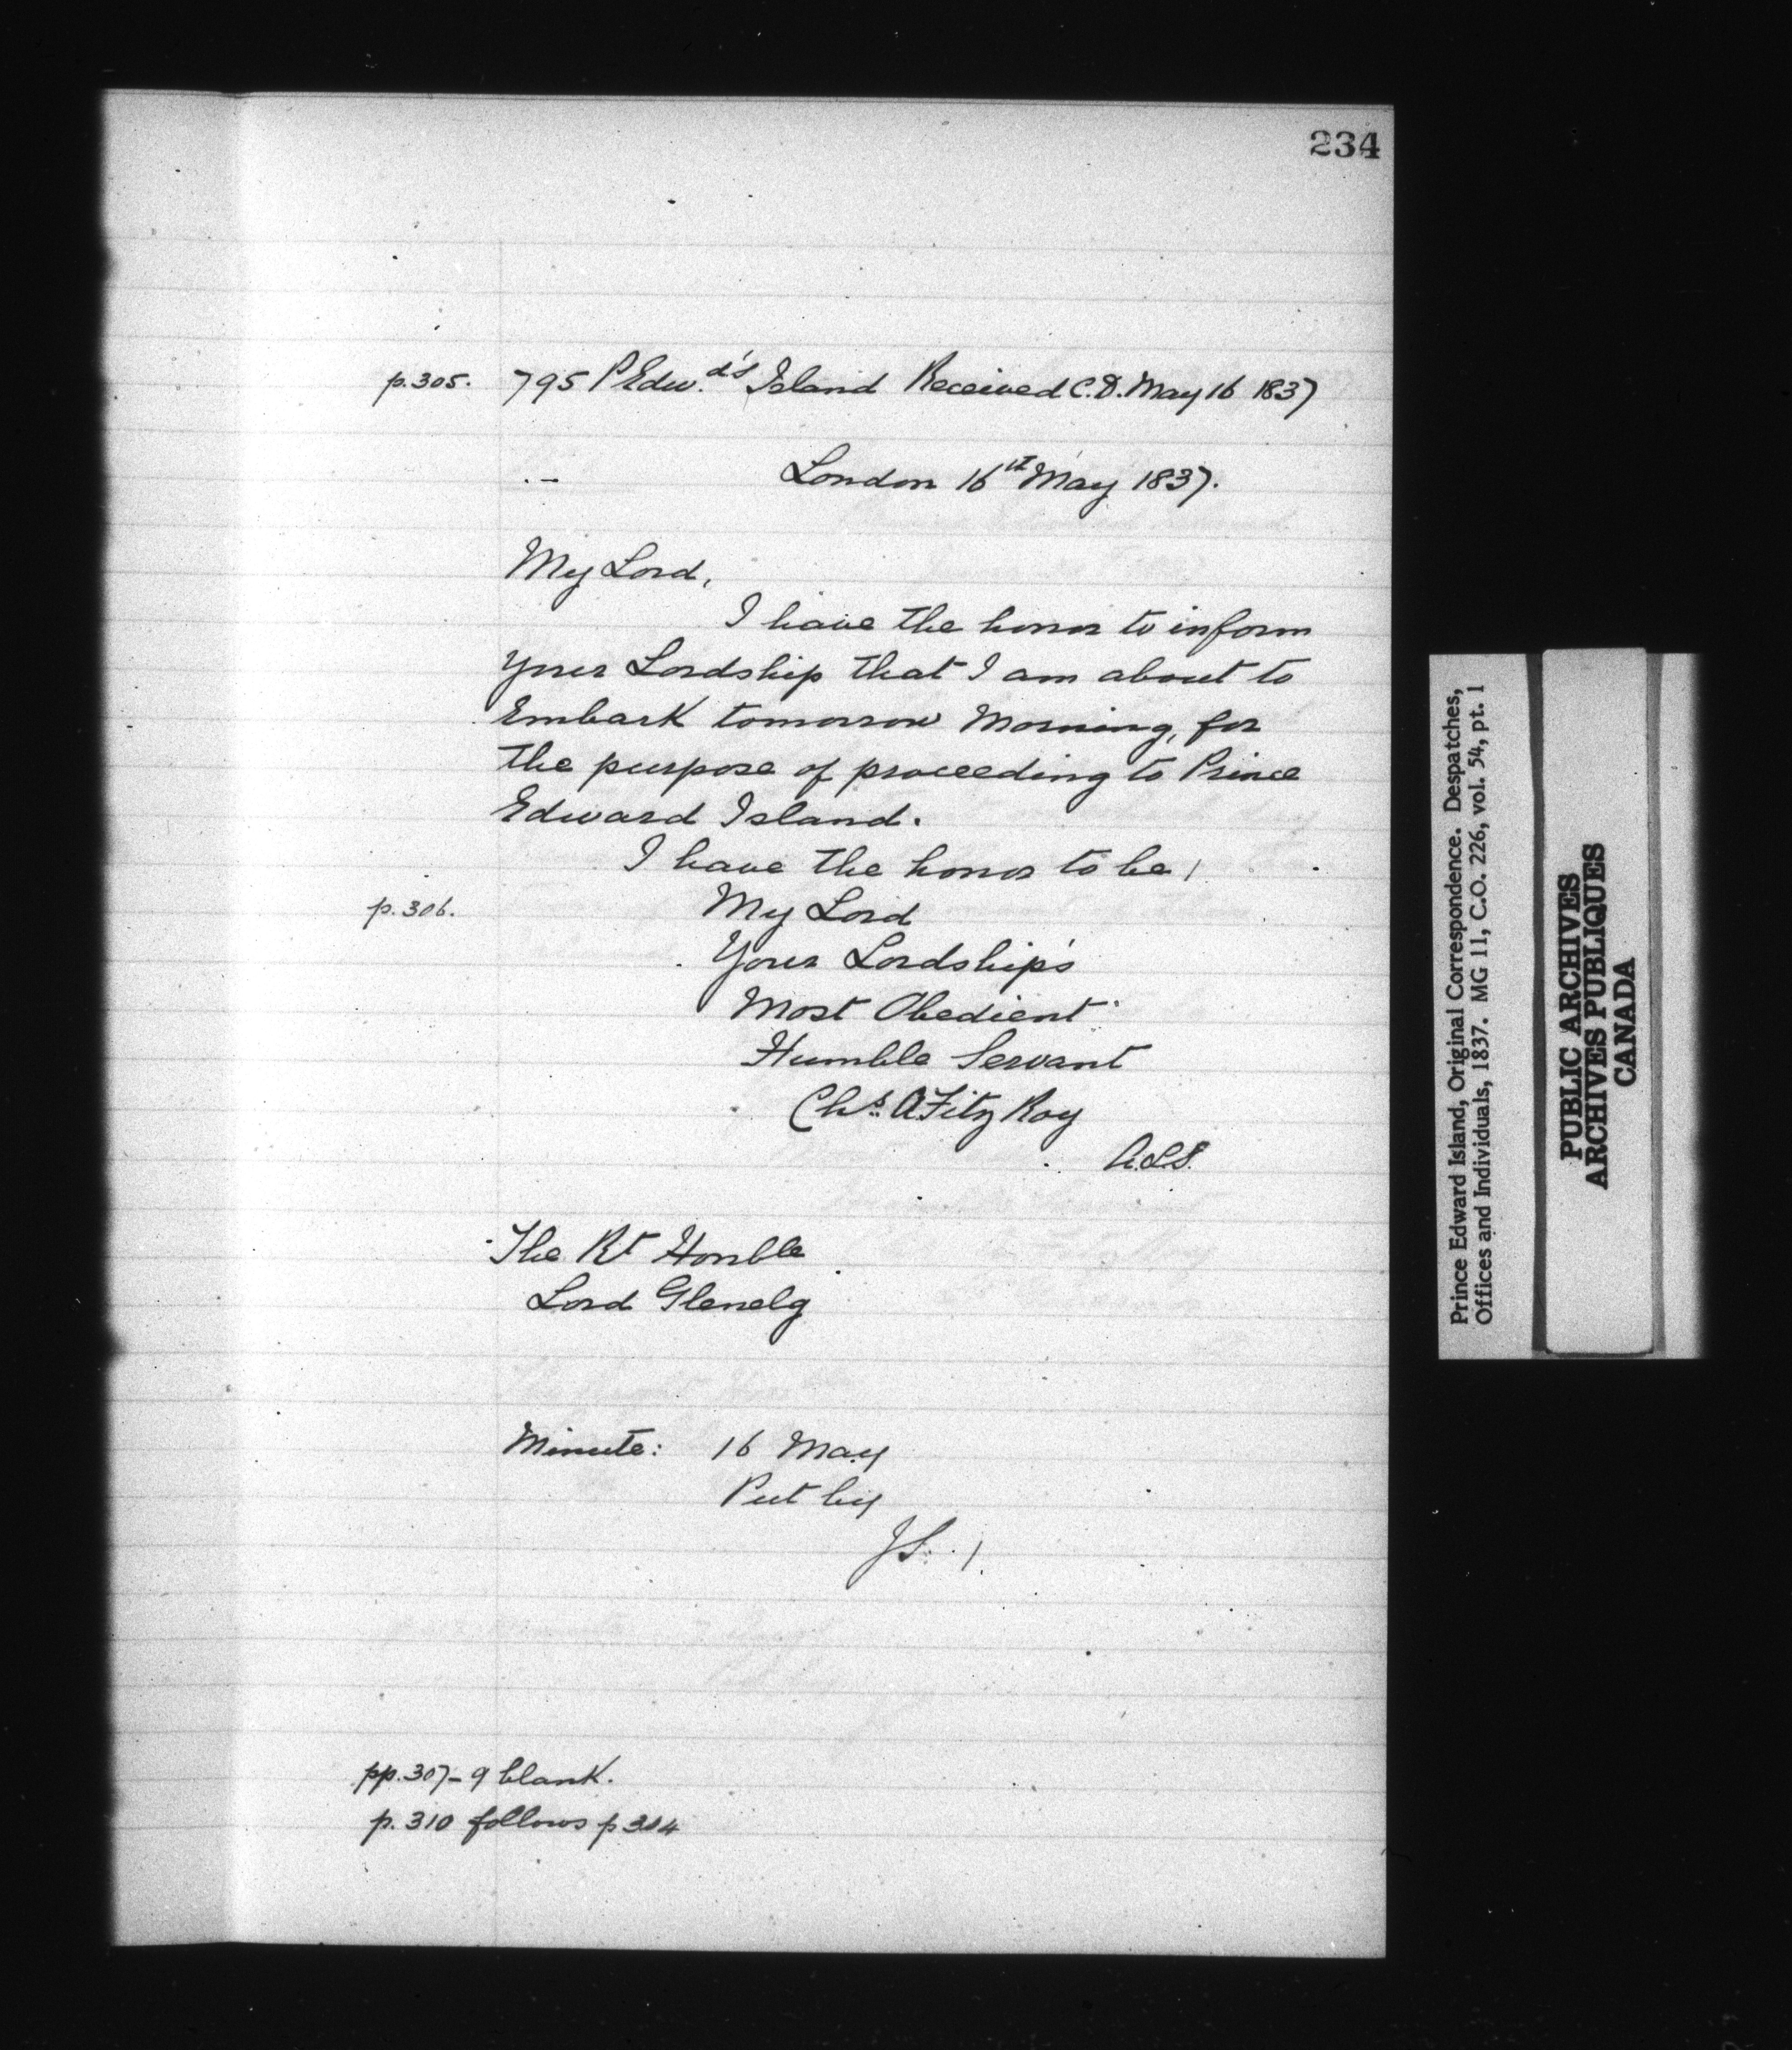 234
p.305. 795 P Edw.d's Island Received C.D. May 16 1837
London 16th May 1837.
My Lord,
I have the honor to inform
your Lordship that I am about to
Embark tomorrow Morning, for
the purpose of proceeding to Prince
Edward Island.
I have the honor to be,
p.306. My Lord
Your Lordship's
Most Obedient
Humble Servant
Chs. A FitzRoy
A.L.S.
The Rt Honble
Lord Glenelg
Minute: 16 May
Put by
JS.
pp. 307-9 blank.
p. 310 follows p 304
Prince Edward Island, Original Correspondence. Despatches,
Offices and Individuals, 1837. MG 11, C.O. 226, vol. 54, pt. 1
PUBLIC ARCHIVES
ARCHIVES PUBLIQUES
CANADA